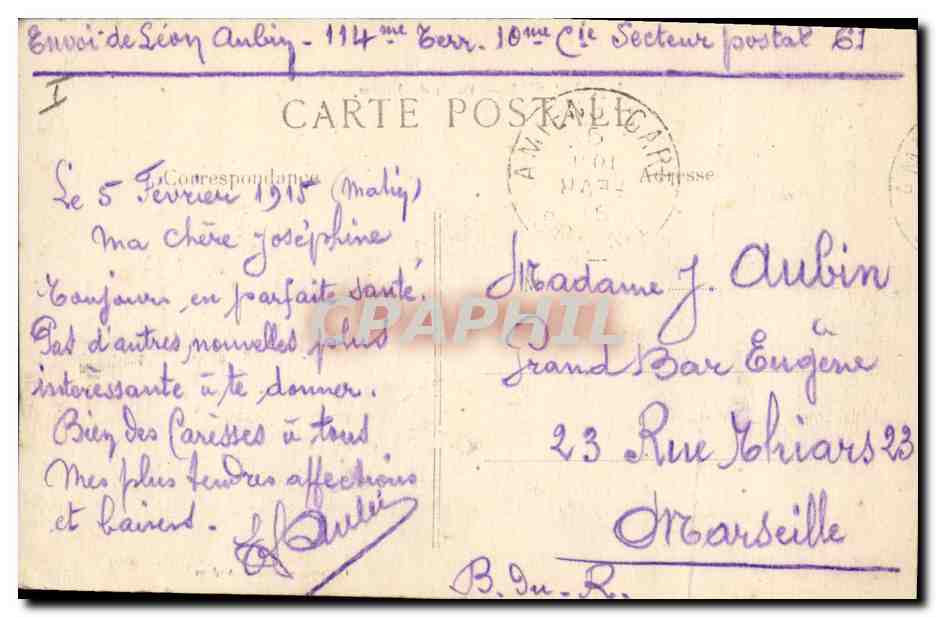 Envoi de Léon Aubin - 114me Terr. 10me Cie Secteur postal 61
I
CARTE POSTALE
Correspondance
Adresse
Le 5 Février 1915 (Matin)
Ma chère Joséphine
Toujours en parfaite santé.
Pas d'autres nouvelles plus
intéressante à te donner.
Bien des Caresses à tous
Mes plus tendres affections
et baisers.
L. Aubin
Madame J. Aubin
Grand Bar Eugène
23 Rue Thiars 23
Marseille
B. du. R.
CPAPHIL